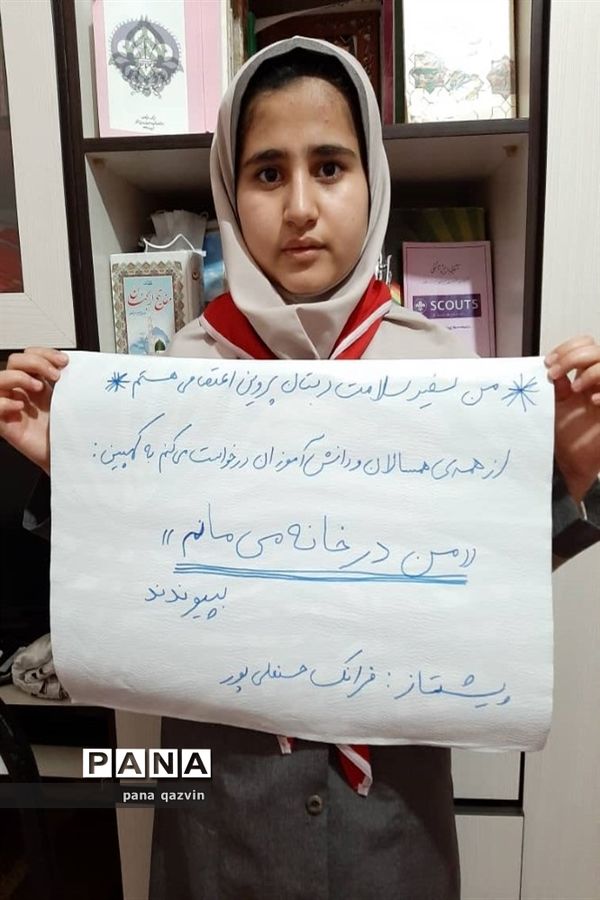 SCOUTS
* من سفیر سلامت دبستان پروین اعتصامی هستم *
از همه‌ی همسالان و دانش‌آموزان درخواست می‌کنم به کمپین :
«من در خانه می مانم»
بپیوندند
پیشتاز : فرانک حسنعلی پور
PANA
pana qazvin